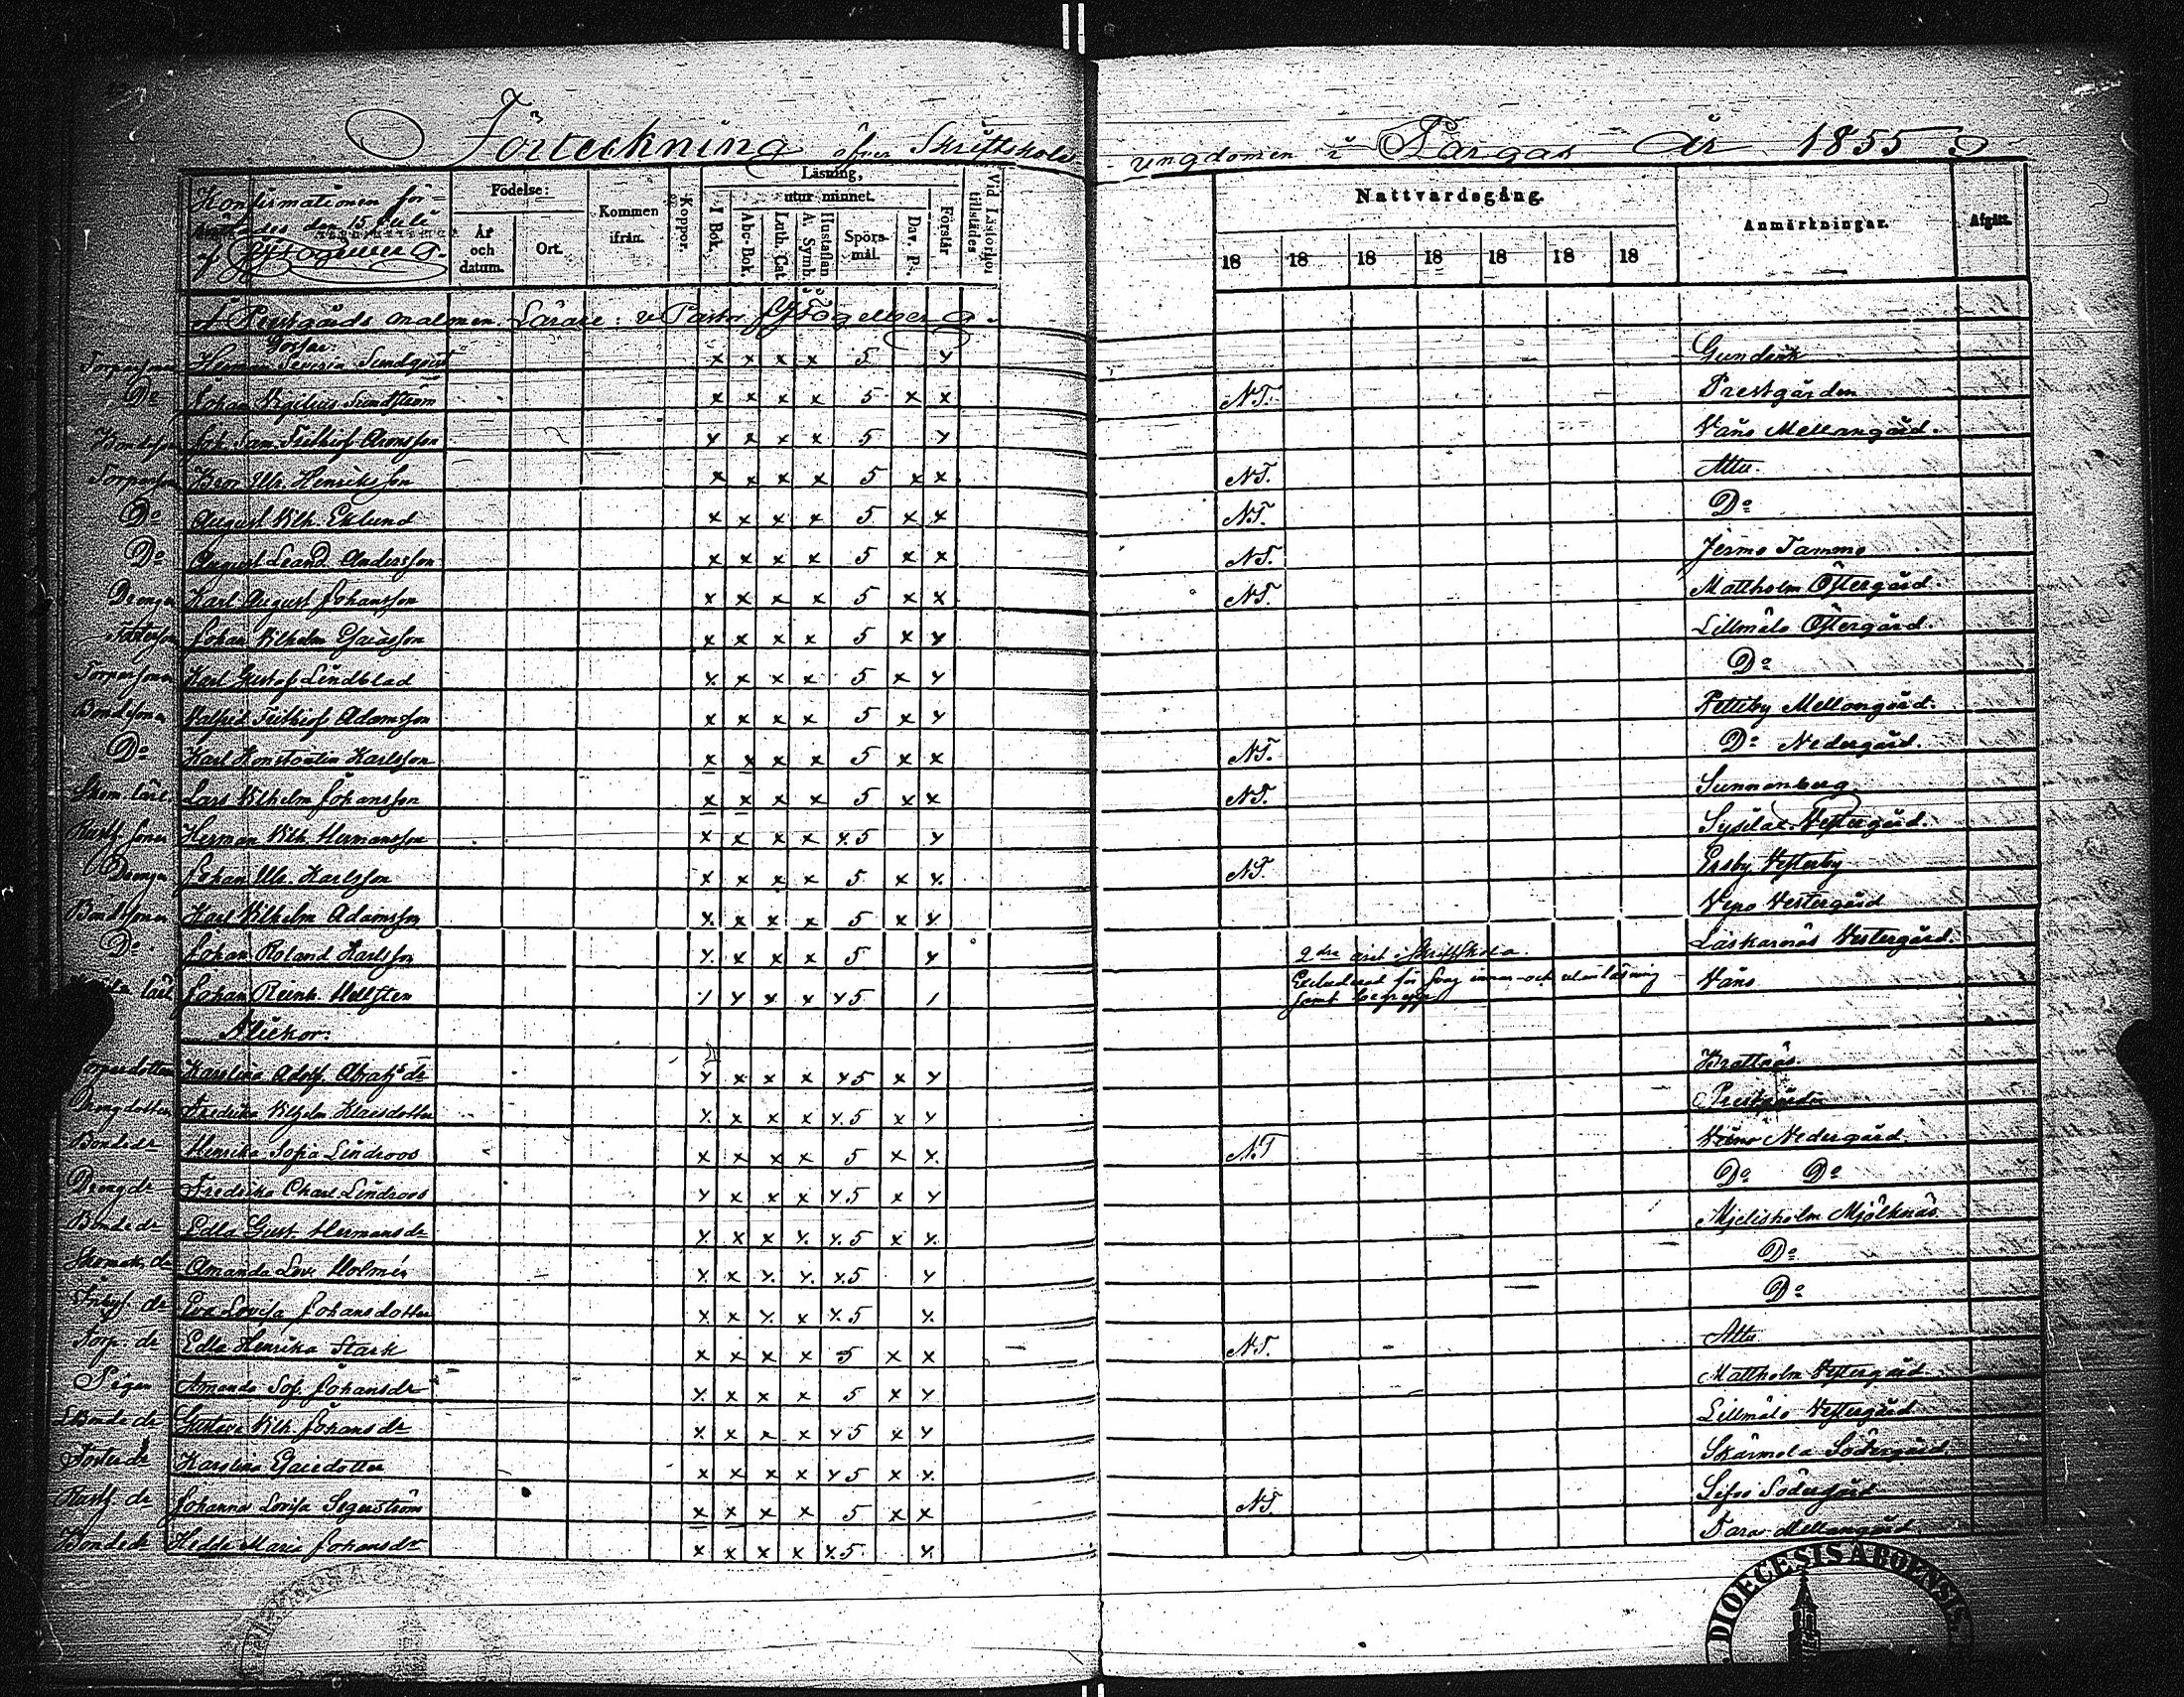 Förteckning öfver Skriftskole ungdomen i Pargas År 1855
Konfirmationen för-
rättades den 15 Juli
af
Födelse:
År och datum.
Ort.
Kommen ifrån.
Koppor.
Läsning,
utur minnet.
I Bok.
Abc-Bok.
Luth. Cat.
A. Symb.
Hustaflan
Spörsmål.
Dav. Ps.
Förstår
Vid Läsförhör, tillstädes
Nattvardsgång.
18 18 18 18 18 18 18
Anmärkningar.
Afgått.
Å Prestgårds malmen. Lärare: v Pastor
Gossar:
Torparson Herman Severin Sundqvist x x x x 5 x
D:o Johan Vigilius Sundström x x x x 5 x x N.T. Prestgården
Bondeson Joh. Sam. Frithiof Aronsson x x x x 5 x Våno Mellangård.
Torparson Henriksson x x x x 5 x x N.T. Attu.
D:o August Vilh. Eklund x x x x 5 x x N.T. D:o
D:o August Leand. Andersson x x x x 5 x x N.T. Jermo Tammo
Drengen Karl August Johansson x x x x 5 x x N.T. Mattholm Östergård.
Johan Vilhelm Esaiasson x x x x 5 x x Lillmälö Östergård.
Torparsonen Karl Gustaf Lindblad x x x x 5 x x D:o
Bondsonen Valfrid Frithiof Adamsson x x x x 5 x x Petteby Mellongård.
D:o Karl Konstantin Karlsson x x x x 5 x x N.T. D:o Nedergård.
Skom. lärl. Lars Vilhelm Johansson x x x x 5 x x N.T. Sunnanberg
Rusth. sonen Herman Vilh. Hermansson x x x x x 5 x Sysilax Vestergård.
Drengen Johan Ulr. Karlsson x x x x 5 x x N.T. Ersby Vesterby
Bondsonen Karl Vilhelm Adamsson x x x x 5 x x Vepo Vestergård
D:o Johan Roland Karlsson x x x x 5 x 2dra året i Skriftskola. Laskarnäs Vestergård.
Johan Reinh. Hellsten / x x x x 5 / Excluderad för svag innan- och utanläsning Våno
samt begrepp
Flickor:
Torparedotter Karolina Adolf. Abrah:s dr x x x x x 5 x x Krattnäs
Drengdotter Fredrika Vilhelm. Klaesdotter x x x x x 5 x x Prestgården
Bondedr Henrika Sofia Lindroos x x x x 5 x x N.T Våno Nedergård.
Drengdr Fredrika Charl. Lindroos x x x x x 5 x x D:o D:o
Bondedr Edla Gust. Hermansdr x x x x x 5 x x Mjelisholm Mjölknäs
Skomak. dr Amanda Lov. Holmén x x x x x 5 x D:o
dr Eva Lovisa Johansdotter x x x x x 5 x D:o
Torp. dr Edla Henrika Stark x x x x 5 x x N.T. Attu
Pigan Amanda Sof. Johansdr x x x x 5 x x Mattholm Vestergård
Bondedr Gustava Vilh. Johansdr x x x x x 5 x x Lillmälö Vestergård
Fosterdr Karolina Esaiedotter x x x x x 5 x x Skärmola Södergård
Rusth. dr Johanna Lovisa Segerström x x x x 5 x x N.T. Sifvo Södergård
Bondedr Hedda Maria Johansdr x x x x x 5 x Mellangård
DIOECESIS ABOENSIS.